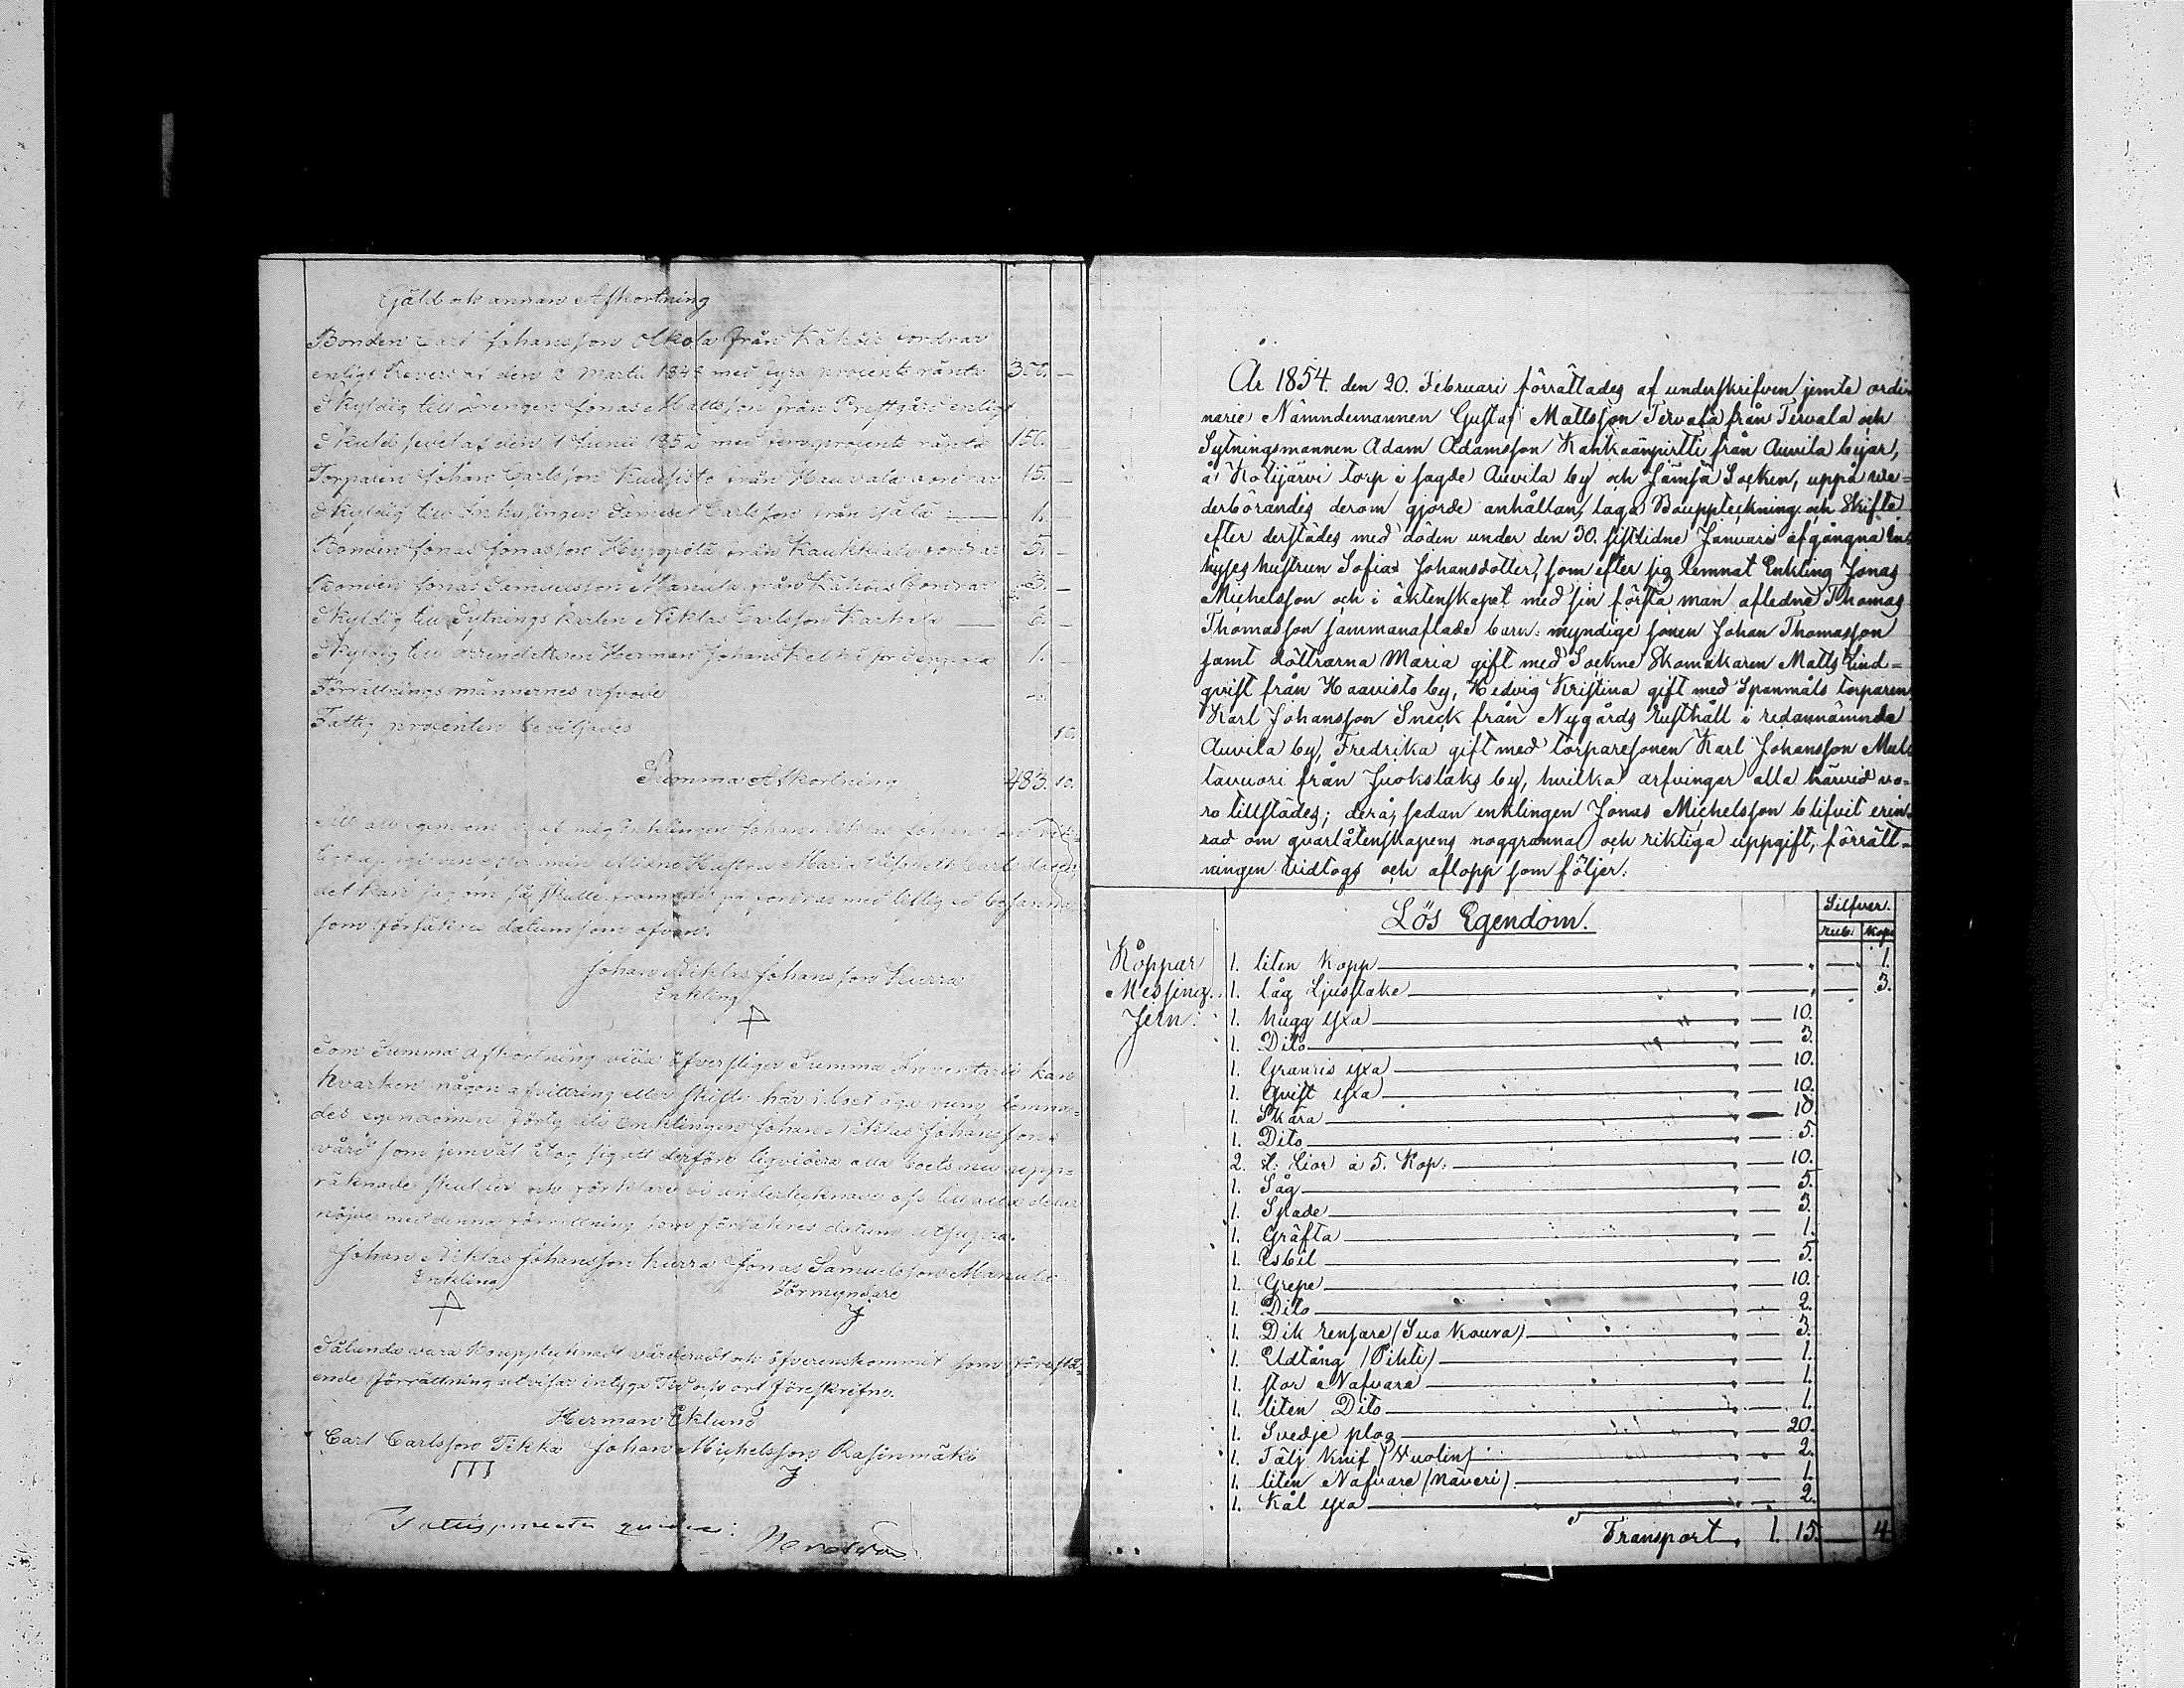 Gäld och annan Afkortning
Bonden Carl Johansson Olkola från Kähöis fordrar
enligt Revers af den 2 Martii 1848 med fyra procents ränta 300. —
Skyldig till Drengen Jonas Mattsson från Prestgård enligt
Skuldsedel af den 1 Junii 1852 med fem procents ränta 150. —
Torparen Johan Carlsson Kuusisto från Hauvala fordrar 15. —
Skyldig till Inhysingen Samuel Carlsson från 1. —
Bonden Jonas Jonasson från Kaukkiala fordrar 5. —
Bonden Jonas Samuelsson Manula från Kähöis fordrar 3. —
Skyldig till Sytnings karlen Niklas Carlsson Karhala 6. —
Skyldig till Arrendatoren Herman Johans 1. —
Förrättnings männernes arfvode
Fattig procenten beviljades 10.
Summa Afkortning 483. 10.
Att all egendom är af mig Enklingen Johan Niklas Johansson
uppgifven efter min aflidne Hustru Maria Lisbeth Carlsdotter
det kan jag om så skulle framdeles på fordras med liflig ed besanna
som försäkras datum som ofvan.
Johan Niklas Johansson Kurra
Enkling
Som Summa Afkortning vida öfverstiger Summa Inventarii kan
hvarken någon afvittring eller skifte här i boet äga rum, lemna-
des egendomen förty till Enklingen Johan Niklas Johanssons
vård som jemväl tog sig att derföre liqvidera alla boets nu upp-
räknade skulder och förklara vi undertecknade oss till alla delar
nöjde med denna förrättning, som försäkres datum utsupra.
Johan Niklas Johansson Kurra Jonas Samuelsson Manula
Enkling Förmyndare
Sålunda vara Bouppteknadt värderadt och öfverenskommit som förestå-
ende Förrättning utvisar intyga Tid och ort föreskrifne.
Herman Eklund
Carl Carlsson Tikka Johan Michelsson Rasinmäki
Fattigprocenten
År 1854 den 20. Februari förrättades af underskrifven jemte ordi-
narie Nämndemannen Gustaf Mattsson Tervala från Tervala och
Sytningsmannen Adam Adamsson Kankaanpirtti från Auvila byar,
å Kotijärvi torp i sagde Auvila by och Jämsä Socken, uppå ve-
derbörandes derom gjorde anhållan, laga Bouppteckning och Skifte
efter derstädes med döden under den 30. sistlidne Januari afgångna In-
hyses hustrun Sofia Johansdotter, som efter sig lemnat Enkling Jonas
Michelsson och i äktenskapet med sin första man aflidne Thomas
Thomasson sammanaflade barn: myndige sonen Johan Thomasson
samt döttrarna Maria gift med Sockne Skomakaren Matts Lind-
qvist från Haavisto by, Hedvig Kristina gift med Spanmåls torparen
Karl Johansson Sneck från Nygårds Rusthåll i redannämnda
Auvila by, Fredrika gift med torparesonen Karl Johansson Mul-
tavuori från Juokslaks by, hvilka arfvingar alla härvid vo-
ro tillstädes; derå, sedan enklingen Jonas Michelsson blifvit erin-
rad om qvarlåtenskapens noggranna och riktiga uppgift, förrätt-
ningen vidtogs och aflopp som följer:
Lös Egendom.
Silfver.
Rub. Kop.
Koppar 1. liten Kopp — 1.
Messing. 1. låg Ljusstake — 3.
Jern. 1. hugg yxa — 10.
1. Dito — 3.
1. Granris yxa — 10.
1. Qvist yxa — 10.
1. Skära — 10.
1. Dito — 5.
2. st: Liar à 5. Kop. — 10.
1. Såg — 5.
1. Spade — 3.
1. Gräfta — 1.
1. Isbil — 5.
1. Grepe — 10.
1. Dito — 2.
1. Dik rensare (Suo Kouva) — 3.
1. Eldtång (Pihti) — 1.
1. stor Nafvare — 1.
1. liten Dito — 1.
1. Svedje plog — 20.
1. Tälj Knif (Vuolin) — 2.
1. liten Nafvare (Näveri) — 1.
1. Kål yxa — 2.
Transport 1. 15. — 4